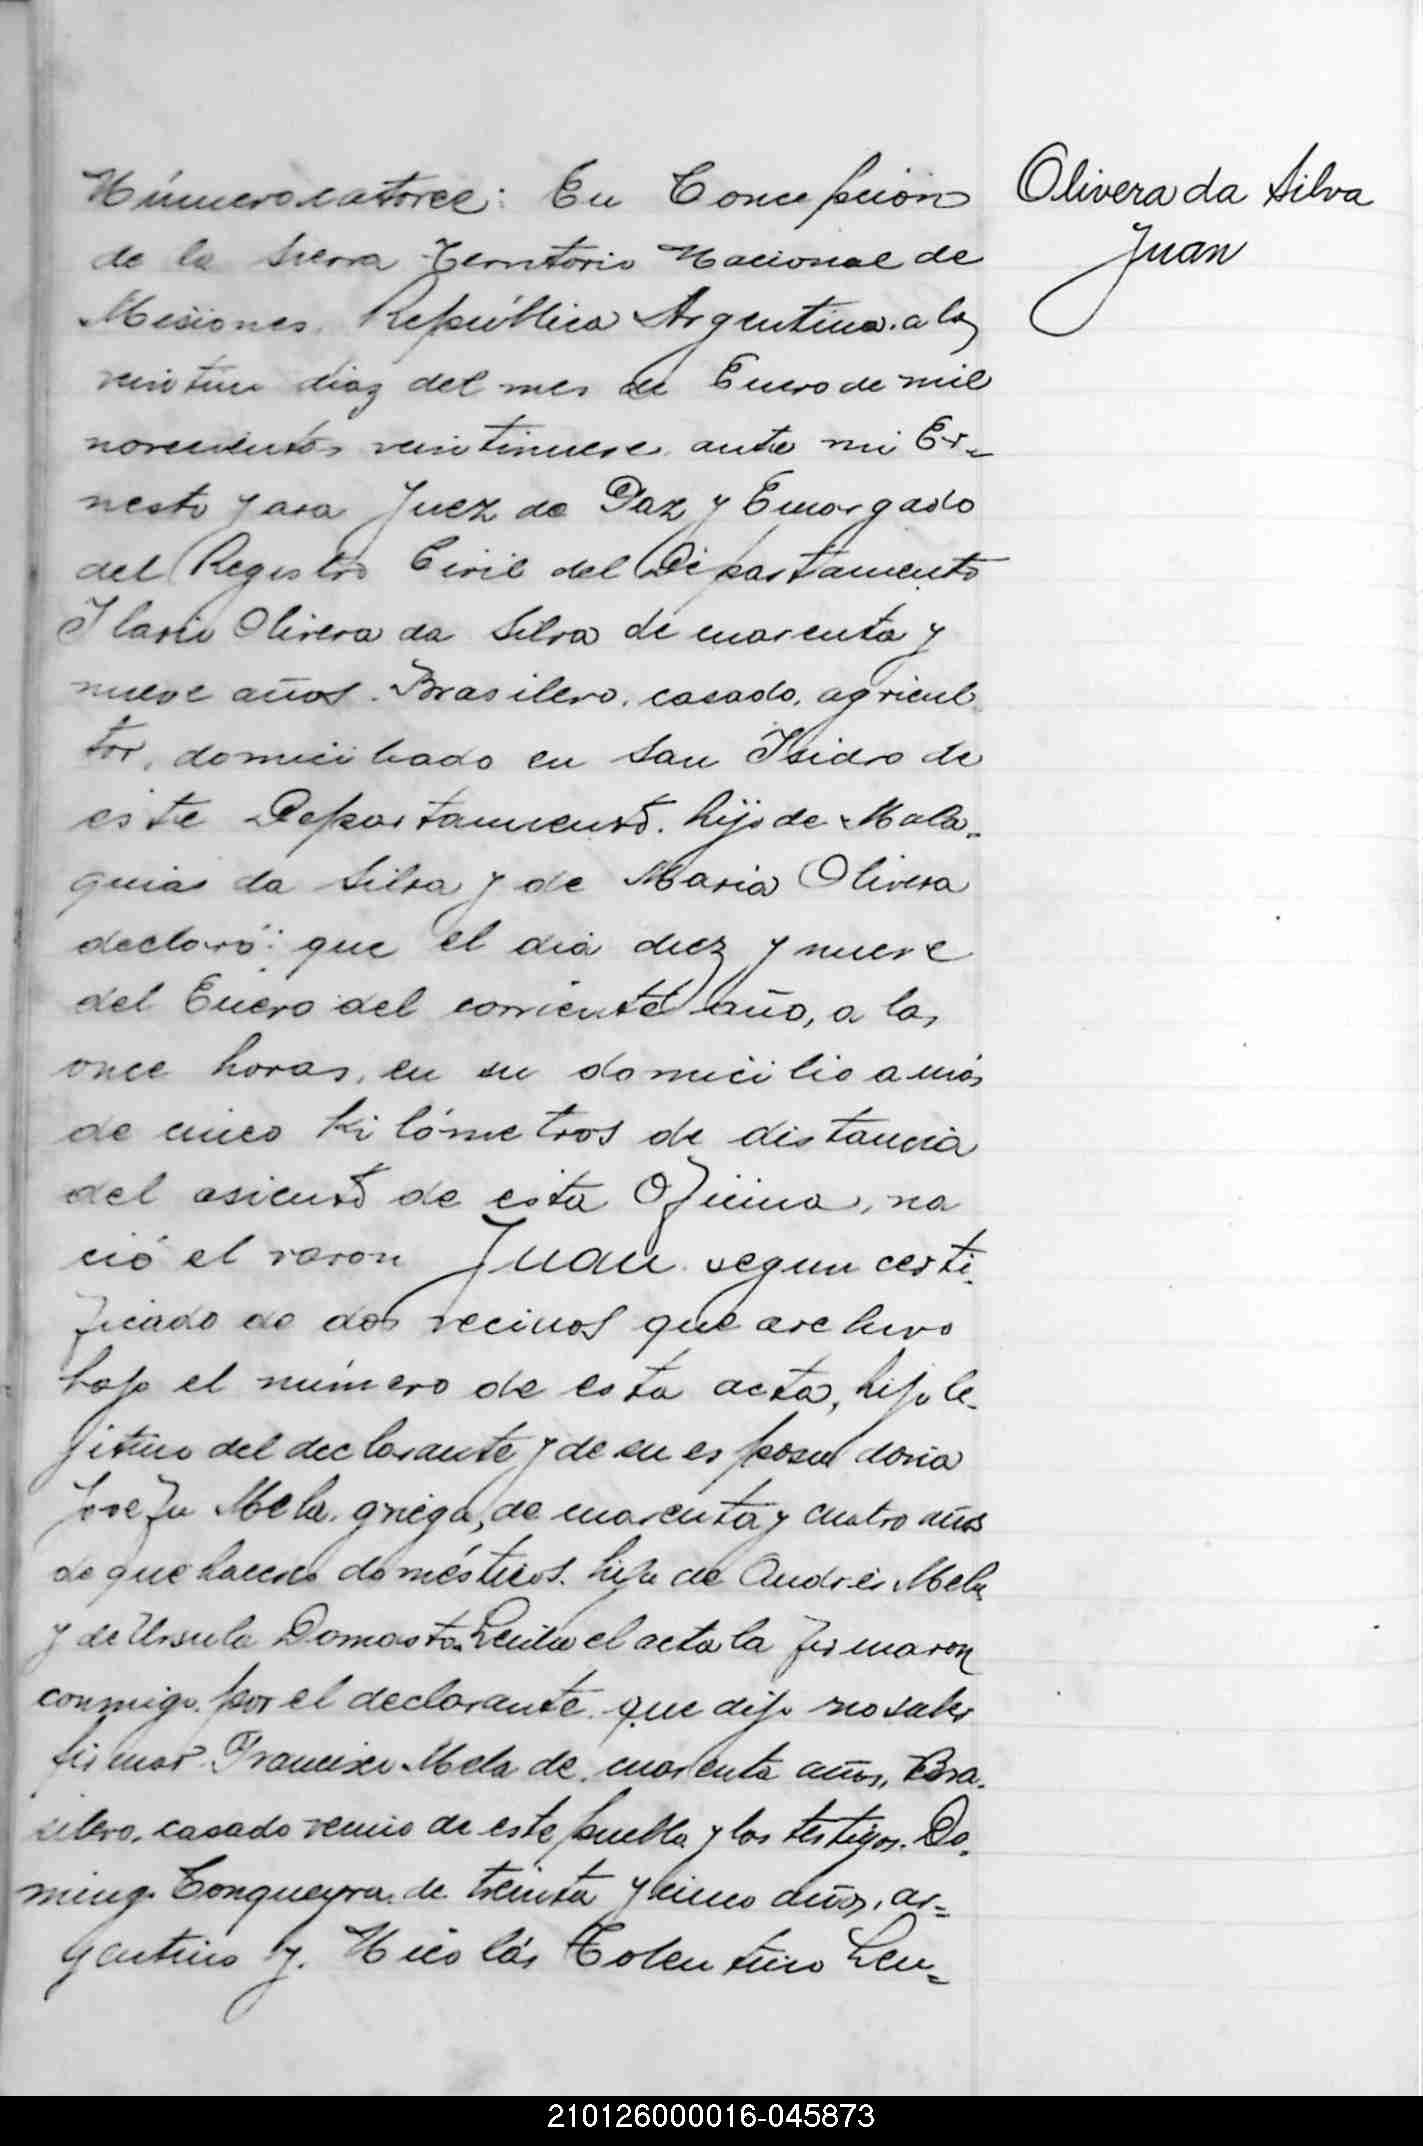 Número catorce: En Concepción
de la Sierra Territorio Nacional de
Misiones, República Argentina, a los
veintiun dias del mes de Enero de mil
novecientos veintinueve, ante mi Er-
nesto Yasa Juez de Paz y Encargado
del Registro Civil del Departamento
Ilario Olivera da Silva de cuarenta y
nueve años. Brasilero, casado, agricul
tor, domiciliado en San Isidro de
este Departamento. hijo de Mala-
quias da Silva y de Maria Olivera
declaró: que el dia diez y nueve
del Enero del corriente año, a las
once horas, en su domicilio a más
de cinco kilómetros de distancia
del asiento de esta Oficina, na
ció el varon Juan segun certi-
ficado de dos vecinos que archivo
bajo el número de esta acta, hijo le-
jitimo del declarante y de su esposa doña
Josefa Mela, griega, de cuarenta y cuatro años
de quehaceres domésticos. hija de Andrés Mela
y de Ursula Domasto. Leida el acta la firmaron
conmigo, por el declarante que dijo no saber
firmar Francisco Mela de cuarenta años, Bra-
silero, casado vecino de este pueblo y los testigos. Do-
mingo Conqueyra de treinta y cinco años, ar=
gentino y. Nicolás Tolentino Len=
Olivera da Silva
Juan
210126000016-045873